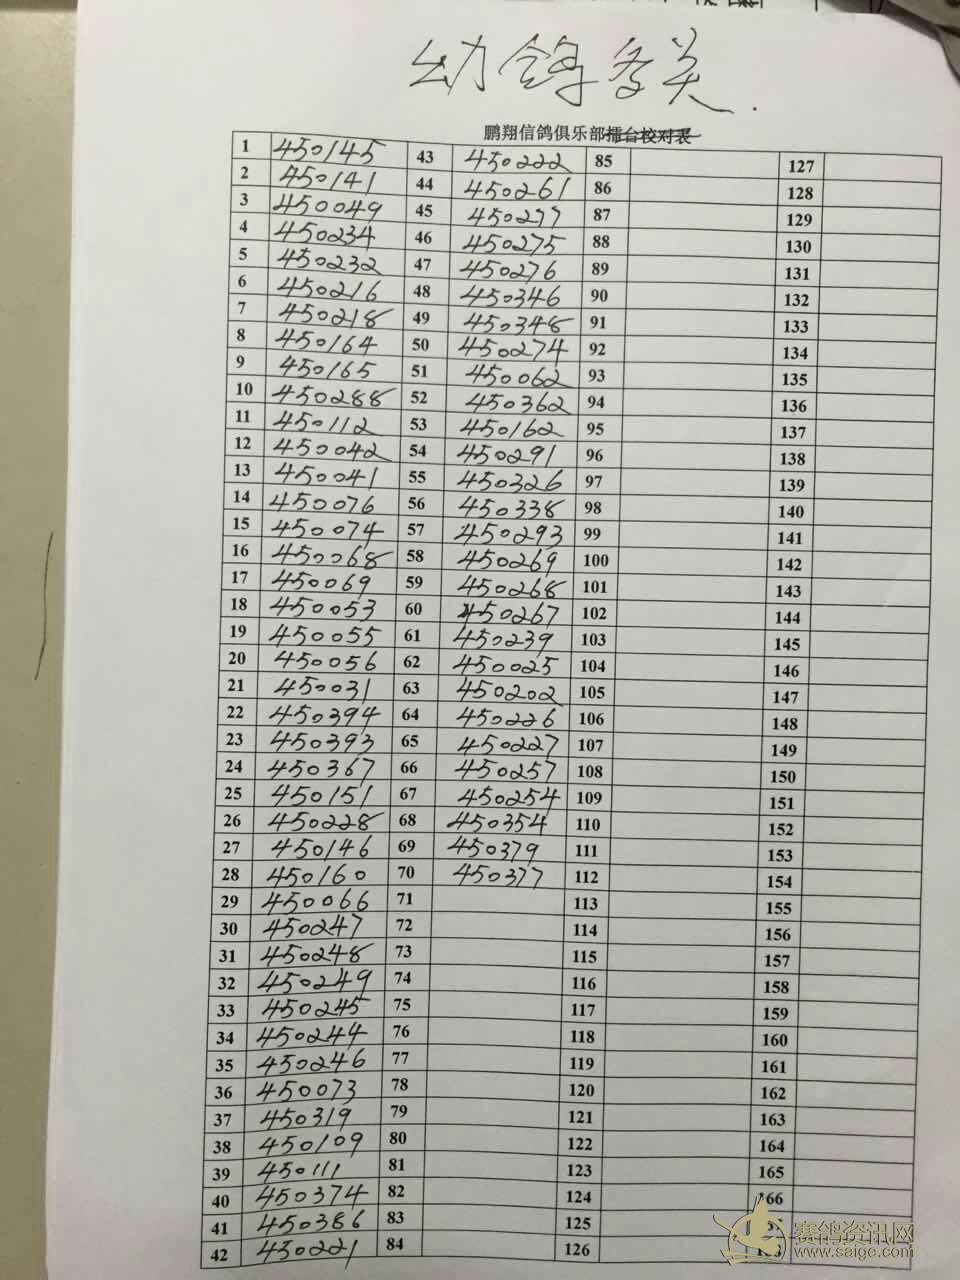 幼鸽多关.
鹏翔信鸽俱乐部擂台校对表
1 450145 43 450222 85 127
2 450141 44 450261 86 128
3 450049 45 450277 87 129
4 450234 46 450275 88 130
5 450232 47 450276 89 131
6 450216 48 450346 90 132
7 450218 49 450348 91 133
8 450164 50 450274 92 134
9 450165 51 450062 93 135
10 450288 52 450362 94 136
11 450112 53 450162 95 137
12 450042 54 450291 96 138
13 450041 55 450326 97 139
14 450076 56 450338 98 140
15 450074 57 450293 99 141
16 450068 58 450269 100 142
17 450069 59 450268 101 143
18 450053 60 450267 102 144
19 450055 61 450239 103 145
20 450056 62 450025 104 146
21 450031 63 450202 105 147
22 450394 64 450226 106 148
23 450393 65 450227 107 149
24 450367 66 450257 108 150
25 450151 67 450254 109 151
26 450228 68 450354 110 152
27 450146 69 450379 111 153
28 450160 70 450377 112 154
29 450066 71 113 155
30 450247 72 114 156
31 450248 73 115 157
32 450249 74 116 158
33 450245 75 117 159
34 450244 76 118 160
35 450246 77 119 161
36 450073 78 120 162
37 450319 79 121 163
38 450109 80 122 164
39 450111 81 123 165
40 450374 82 124 166
41 450386 83 125
42 450221 84 126
赛鸽资讯网
www.saige.com